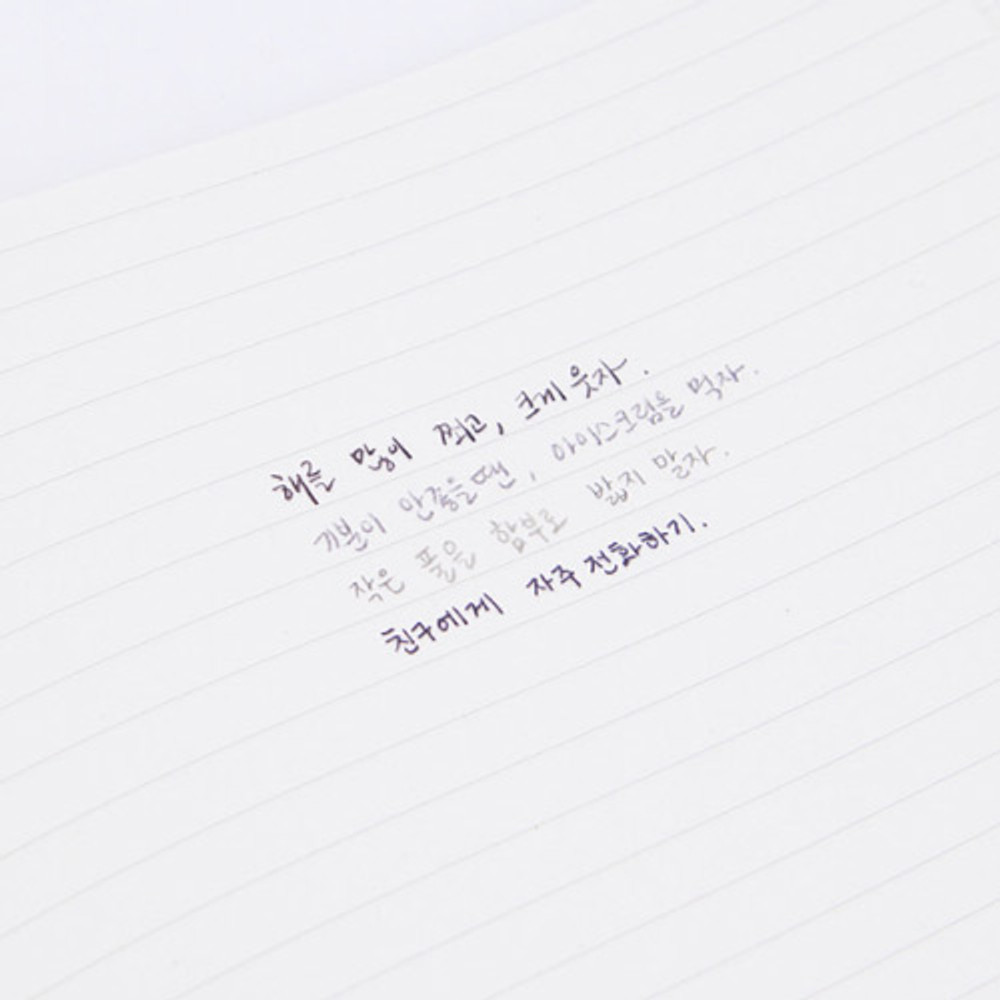 해를 많이 쬐고, 크게 웃자.
기분이 안좋을땐, 아이스크림을 먹자.
작은 풀을 함부로 밟지 말자.
친구에게 자주 전화하기.